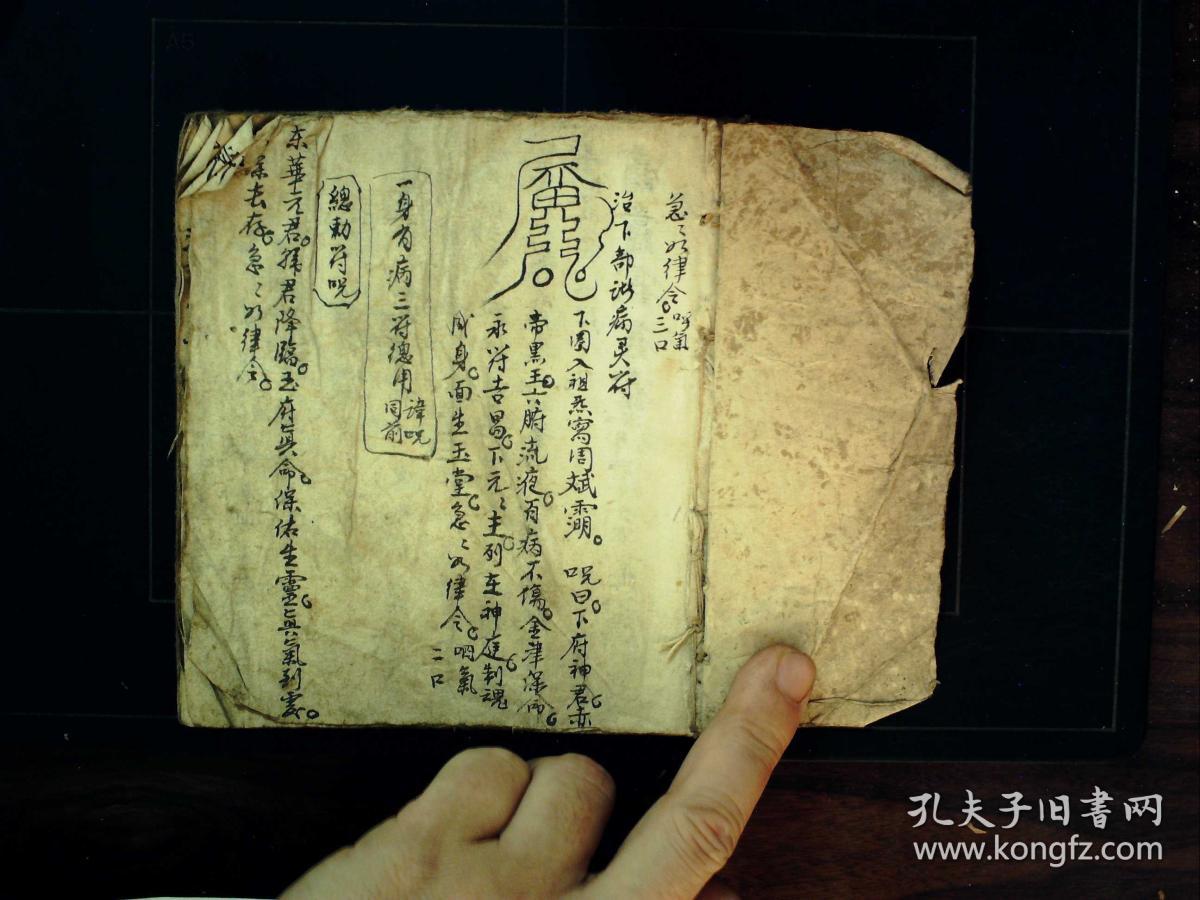 急〻如律令呼氣三口
治下部諸病灵符
下圊入祖炁寫周斌霸 咒曰下府神君赤
帝黑王六腑流液百病不傷金津深
永符吉昌下元〻主列在神庭制魂
威身面生玉堂急〻如律令咽氣二口
一身有病三符總用諱咒同前
總勅符呪
东華元君拜君降臨玉府真命保佑生靈真氣到處
去存急〻如律令
A5
孔夫子旧書网
www.kongfz.com